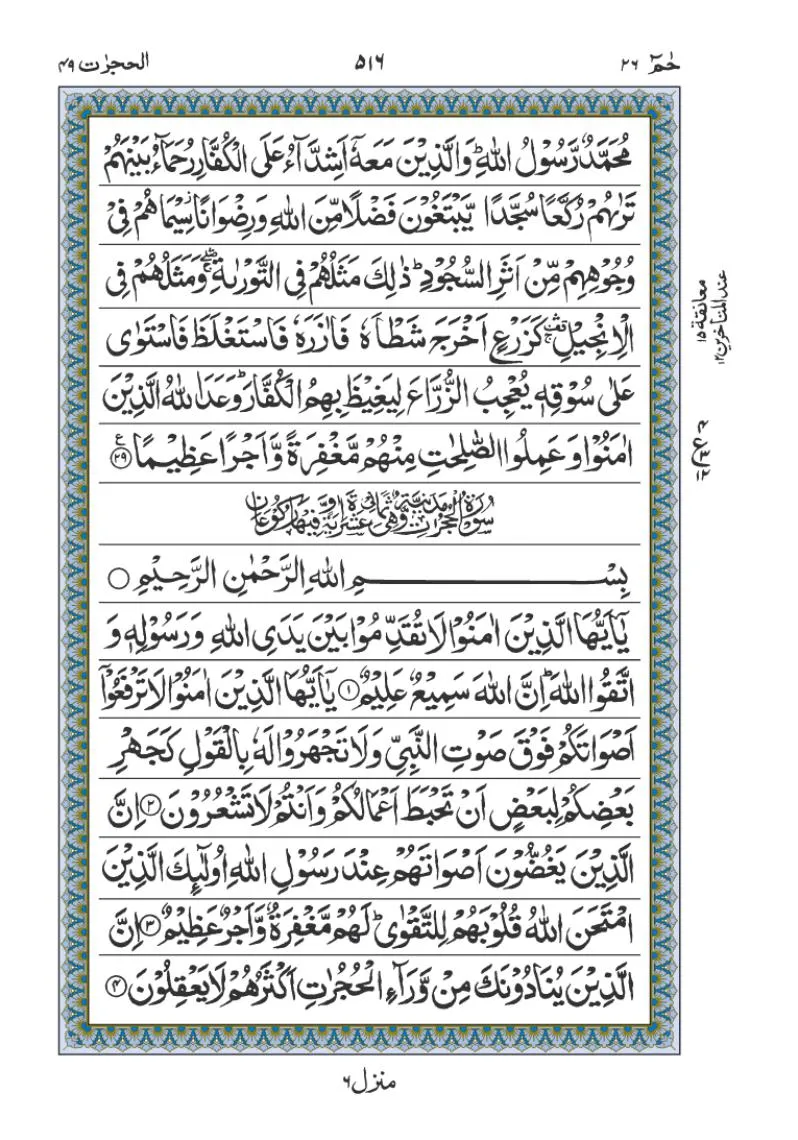 حٰمٓ ۲۶
۵۱۶
الحجرٰت ۴۹
مُحَمَّدٌ رَّسُوْلُ اللّٰهِؕ وَالَّذِيْنَ مَعَهٗۤ اَشِدَّآءُ عَلَى الْكُفَّارِ رُحَمَآءُ بَيْنَهُمْ
تَرٰىهُمْ رُكَّعًا سُجَّدًا يَّبْتَغُوْنَ فَضْلًا مِّنَ اللّٰهِ وَرِضْوَانًا٘ سِيْمَاهُمْ فِيْ
وُجُوْهِهِمْ مِّنْ اَثَرِ السُّجُوْدِؕ ذٰلِكَ مَثَلُهُمْ فِي التَّوْرٰىةِ ۛۖۚ وَمَثَلُهُمْ فِي
الْاِنْجِيْلِ ۛ۫ۚ كَزَرْعٍ اَخْرَجَ شَطْـَٔهٗ فَاٰزَرَهٗ فَاسْتَغْلَظَ فَاسْتَوٰى
عَلٰى سُوْقِهٖ يُعْجِبُ الزُّرَّاعَ لِيَغِيْظَ بِهِمُ الْكُفَّارَؕ وَعَدَ اللّٰهُ الَّذِيْنَ
اٰمَنُوْا وَعَمِلُوا الصّٰلِحٰتِ مِنْهُمْ مَّغْفِرَةً وَّاَجْرًا عَظِيْمًا ۲۹ ع
سُوْرَةُ الْحُجُرٰتِ مَدَنِيَّةٌ وَّهِيَ ثَمَانِيَ عَشْرَةَ اٰيَةً وَّفِيْهَا رُكُوْعَانِ
بِسْمِ اللّٰهِ الرَّحْمٰنِ الرَّحِيْمِ ○
يٰۤاَيُّهَا الَّذِيْنَ اٰمَنُوْا لَا تُقَدِّمُوْا بَيْنَ يَدَيِ اللّٰهِ وَرَسُوْلِهٖ وَ
اتَّقُوا اللّٰهَؕ اِنَّ اللّٰهَ سَمِيْعٌ عَلِيْمٌ ۱ يٰۤاَيُّهَا الَّذِيْنَ اٰمَنُوْا لَا تَرْفَعُوْۤا
اَصْوَاتَكُمْ فَوْقَ صَوْتِ النَّبِيِّ وَلَا تَجْهَرُوْا لَهٗ بِالْقَوْلِ كَجَهْرِ
بَعْضِكُمْ لِبَعْضٍ اَنْ تَحْبَطَ اَعْمَالُكُمْ وَاَنْتُمْ لَا تَشْعُرُوْنَ ۲ اِنَّ
الَّذِيْنَ يَغُضُّوْنَ اَصْوَاتَهُمْ عِنْدَ رَسُوْلِ اللّٰهِ اُولٰٓئِكَ الَّذِيْنَ
امْتَحَنَ اللّٰهُ قُلُوْبَهُمْ لِلتَّقْوٰىؕ لَهُمْ مَّغْفِرَةٌ وَّاَجْرٌ عَظِيْمٌ ۳ اِنَّ
الَّذِيْنَ يُنَادُوْنَكَ مِنْ وَّرَآءِ الْحُجُرٰتِ اَكْثَرُهُمْ لَا يَعْقِلُوْنَ ۴
معانقة ۱۵
عند المتاخرين ۱۲
منزل ۶